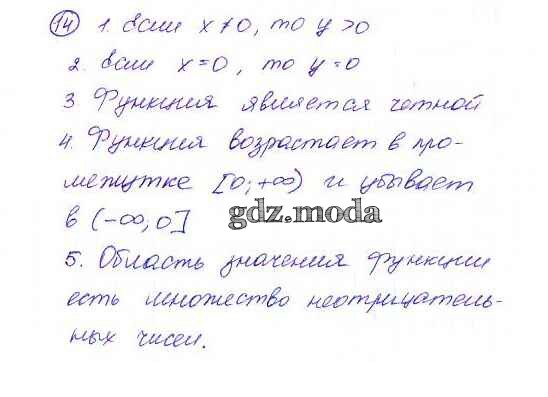 14 1. Если x ≠ 0, то y > 0
2. Если x = 0, то y = 0
3 Функция является четной
4. Функция возрастает в про-
межутке [0; +∞) и убывает
в (-∞; 0]
gdz.moda
5. Область значения функции
есть множество неотрицатель-
ных чисел.